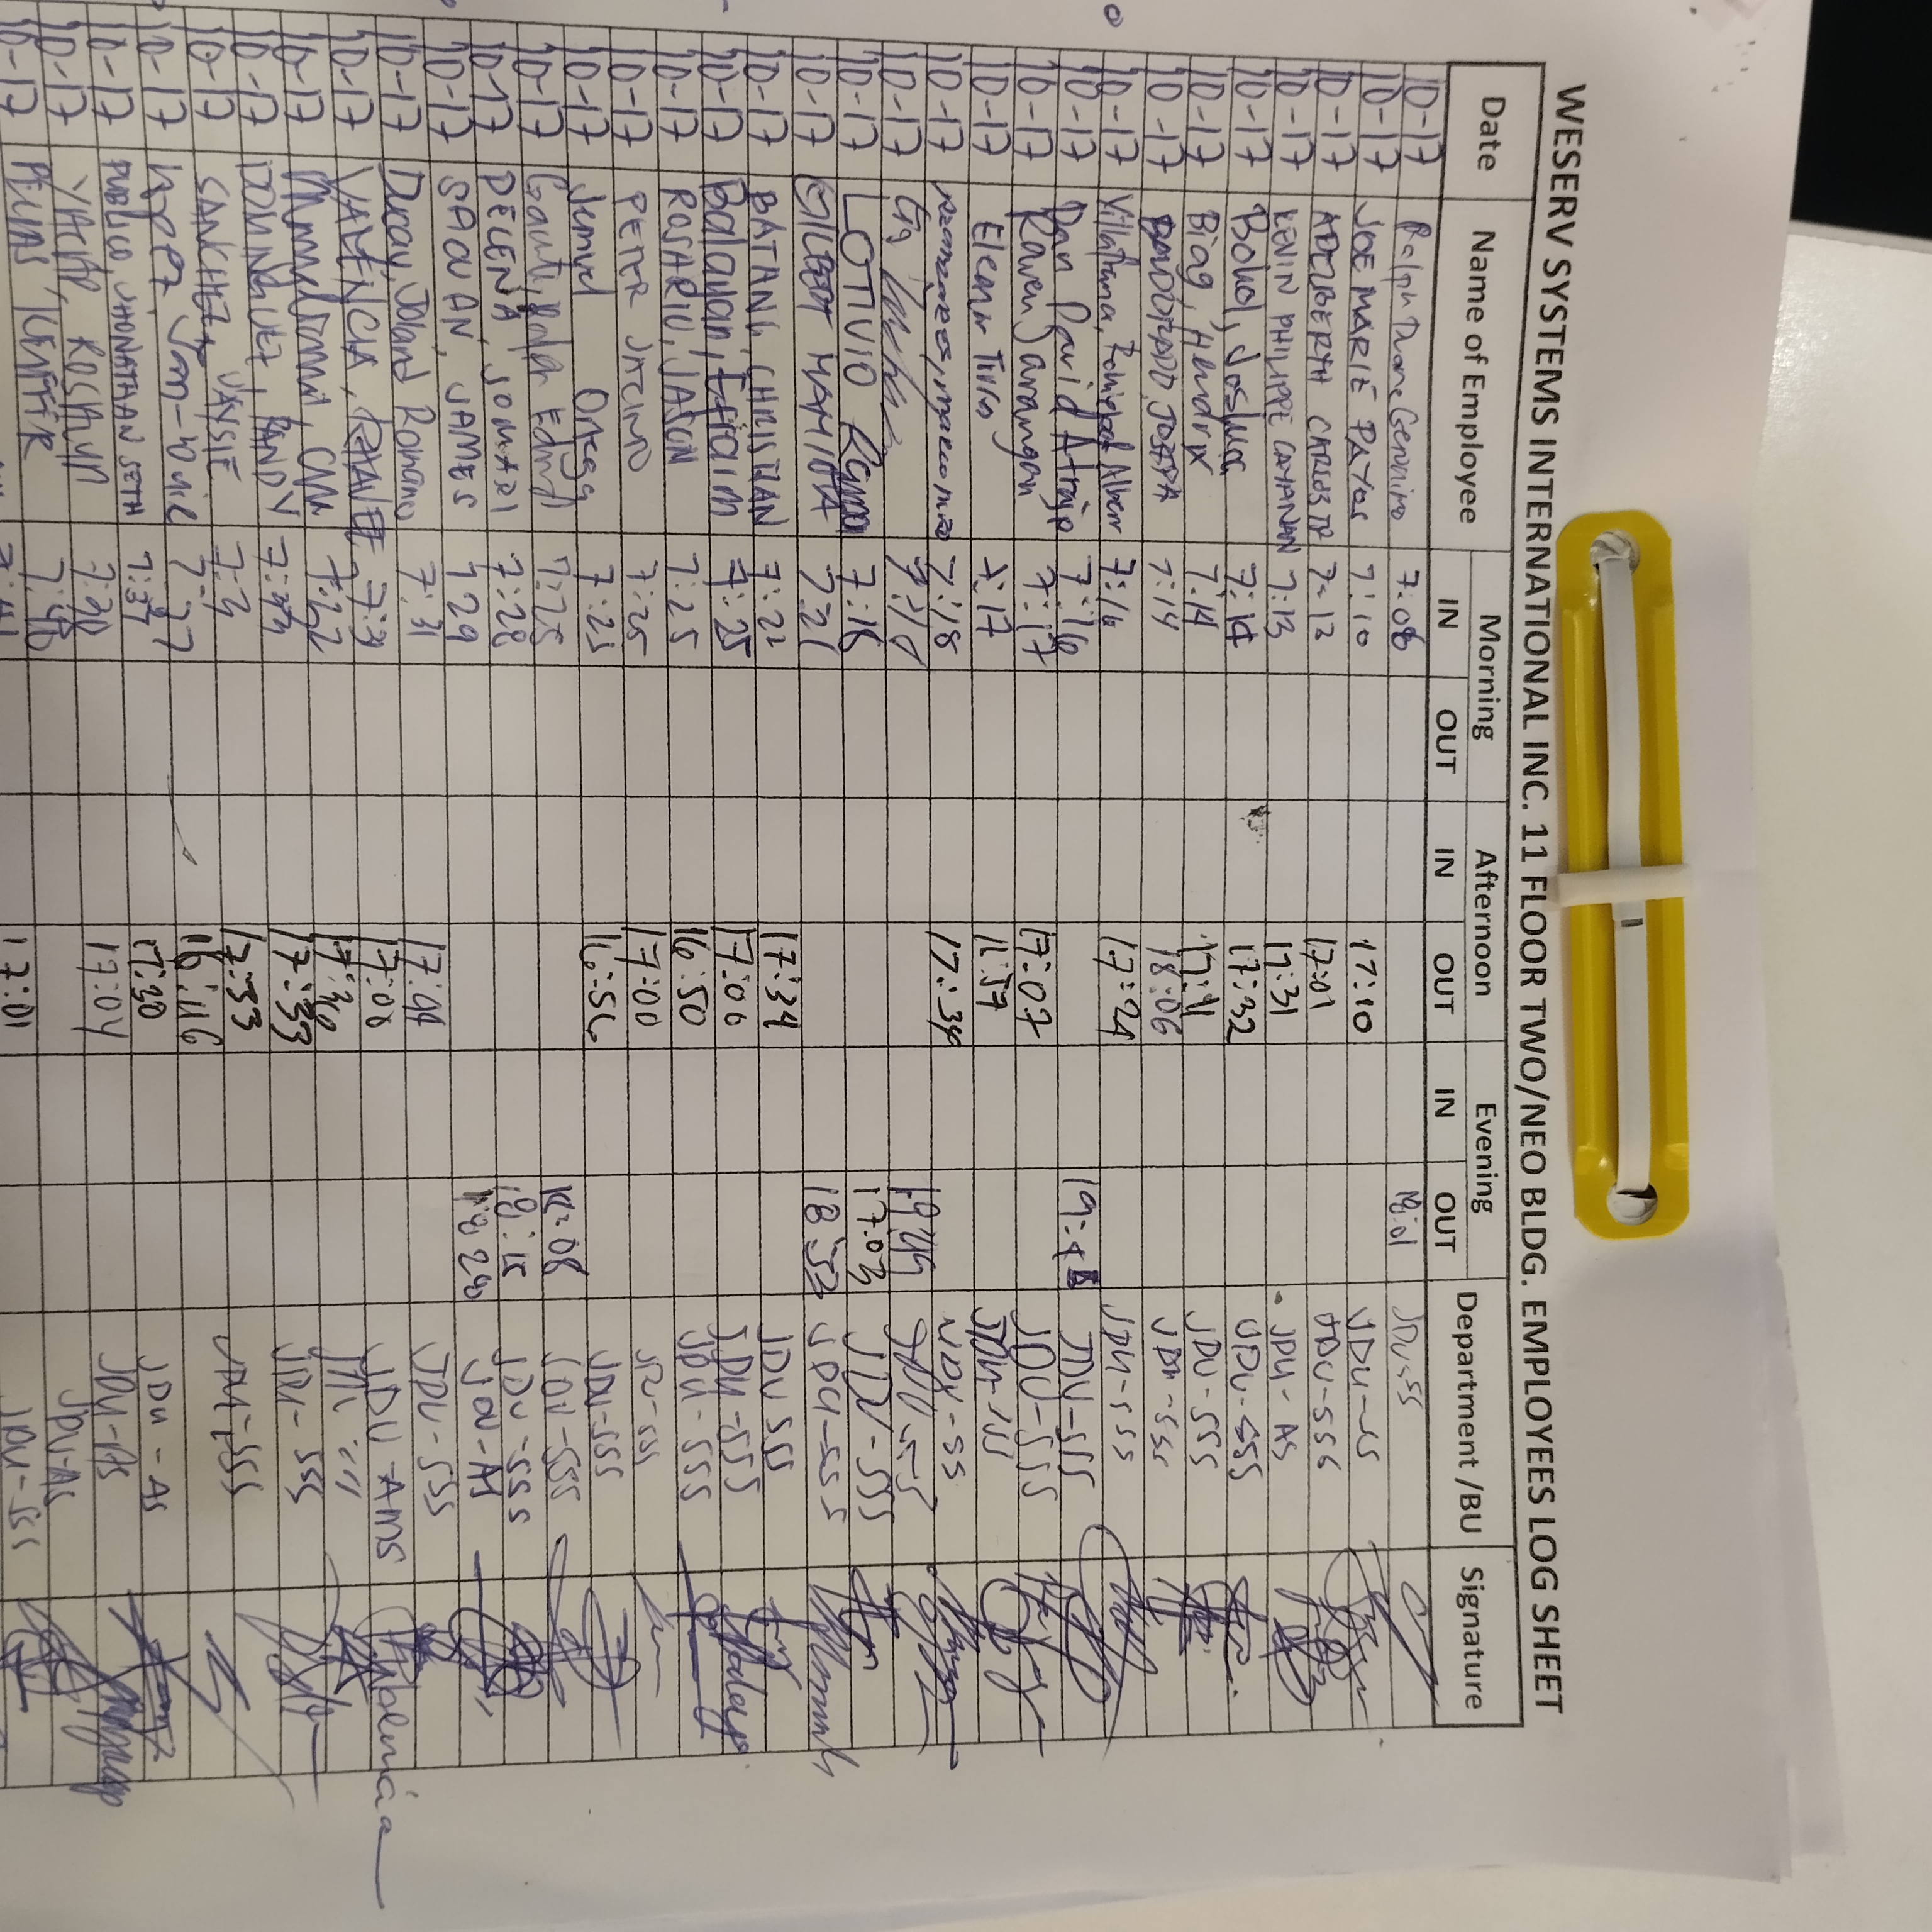 WESERV SYSTEMS INTERNATIONAL INC. 11 FLOOR TWO/NEO BLDG. EMPLOYEES LOG SHEET
Date Name of Employee Morning Afternoon Evening Department /BU Signature
IN OUT IN OUT IN OUT
10-17 Ralph Duane Geronimo 7:08 18:01 JDU-SS
10-17 JOE MARIE PAYOS 7:10 17:10 JDU-SS
10-17 ADELBERTH CARLOS JR 7:13 17:01 JDU-SSS
10-17 KEVIN PHILIPPE CAYANAN 7:13 17:31 JDU-AS
10-17 Bohol, Joshua 7:14 17:32 JDU-SSS
10-17 Biag, Hendrix 7:14 17:11 JDU-SSS
10-17 7:14 18:06 JDU-SSS
10-17 Villafrana, 7:16 17:24 JDU-SSS
10-17 Dan David 7:16 JDU-SSS
10-17 Raven Jarangan 7:17 17:07 JDU-SSS
10-17 Eleanor 7:17 JDU-SSS
10-17 7:18 17:34 JDU-SS
10-17 7:18 19:49
10-17 LOTIVIO 7:18 17:03 JDU-SSS
10-17 GILBERT 7:21 18:53 JDU-SSS
10-17 BATANG, CHRISTIAN 7:22 17:34 JDU SSS
10-17 Balayan, Efraim 7:25 17:00 JDU-SSS
10-17 ROSARIO, JASON 7:25 16:50 JDU-SSS
10-17 PETER JACINTO 7:25 17:00 JDU-SSS
10-17 Jemuel Ortega 7:25 16:56 JDU-SSS
10-17 7:25 18:08 JDU-SSS
10-17 DELENA, JOMARI 7:28 18:15 JDU-SSS
10-17 SAQUAN, JAMES 7 29 18 28 JDU-AS
10-17 Ducay, Joland Romano 7:31 17:44 JDU-SSS
10-17 VALENCIA, 7:31 17:00 JDU-AMS
10-17 7:32
10-17 DOMINGUEZ, RANDY 7:33 17:33 JDU-SSS
10-17 SANCHEZ, JAYSIE 17:33 JDU-SSS
10-17 Lopez, 7 37 16:46
10-17 PUBLICO, JHONATHAN SETH 7:37 17:30 JDU-AS
10-17 YACAP, ROSALYN 7:38 17:04 JDU-AS
10-17 7:40 JDU-AS
7:41 17:01 JDU-SSS